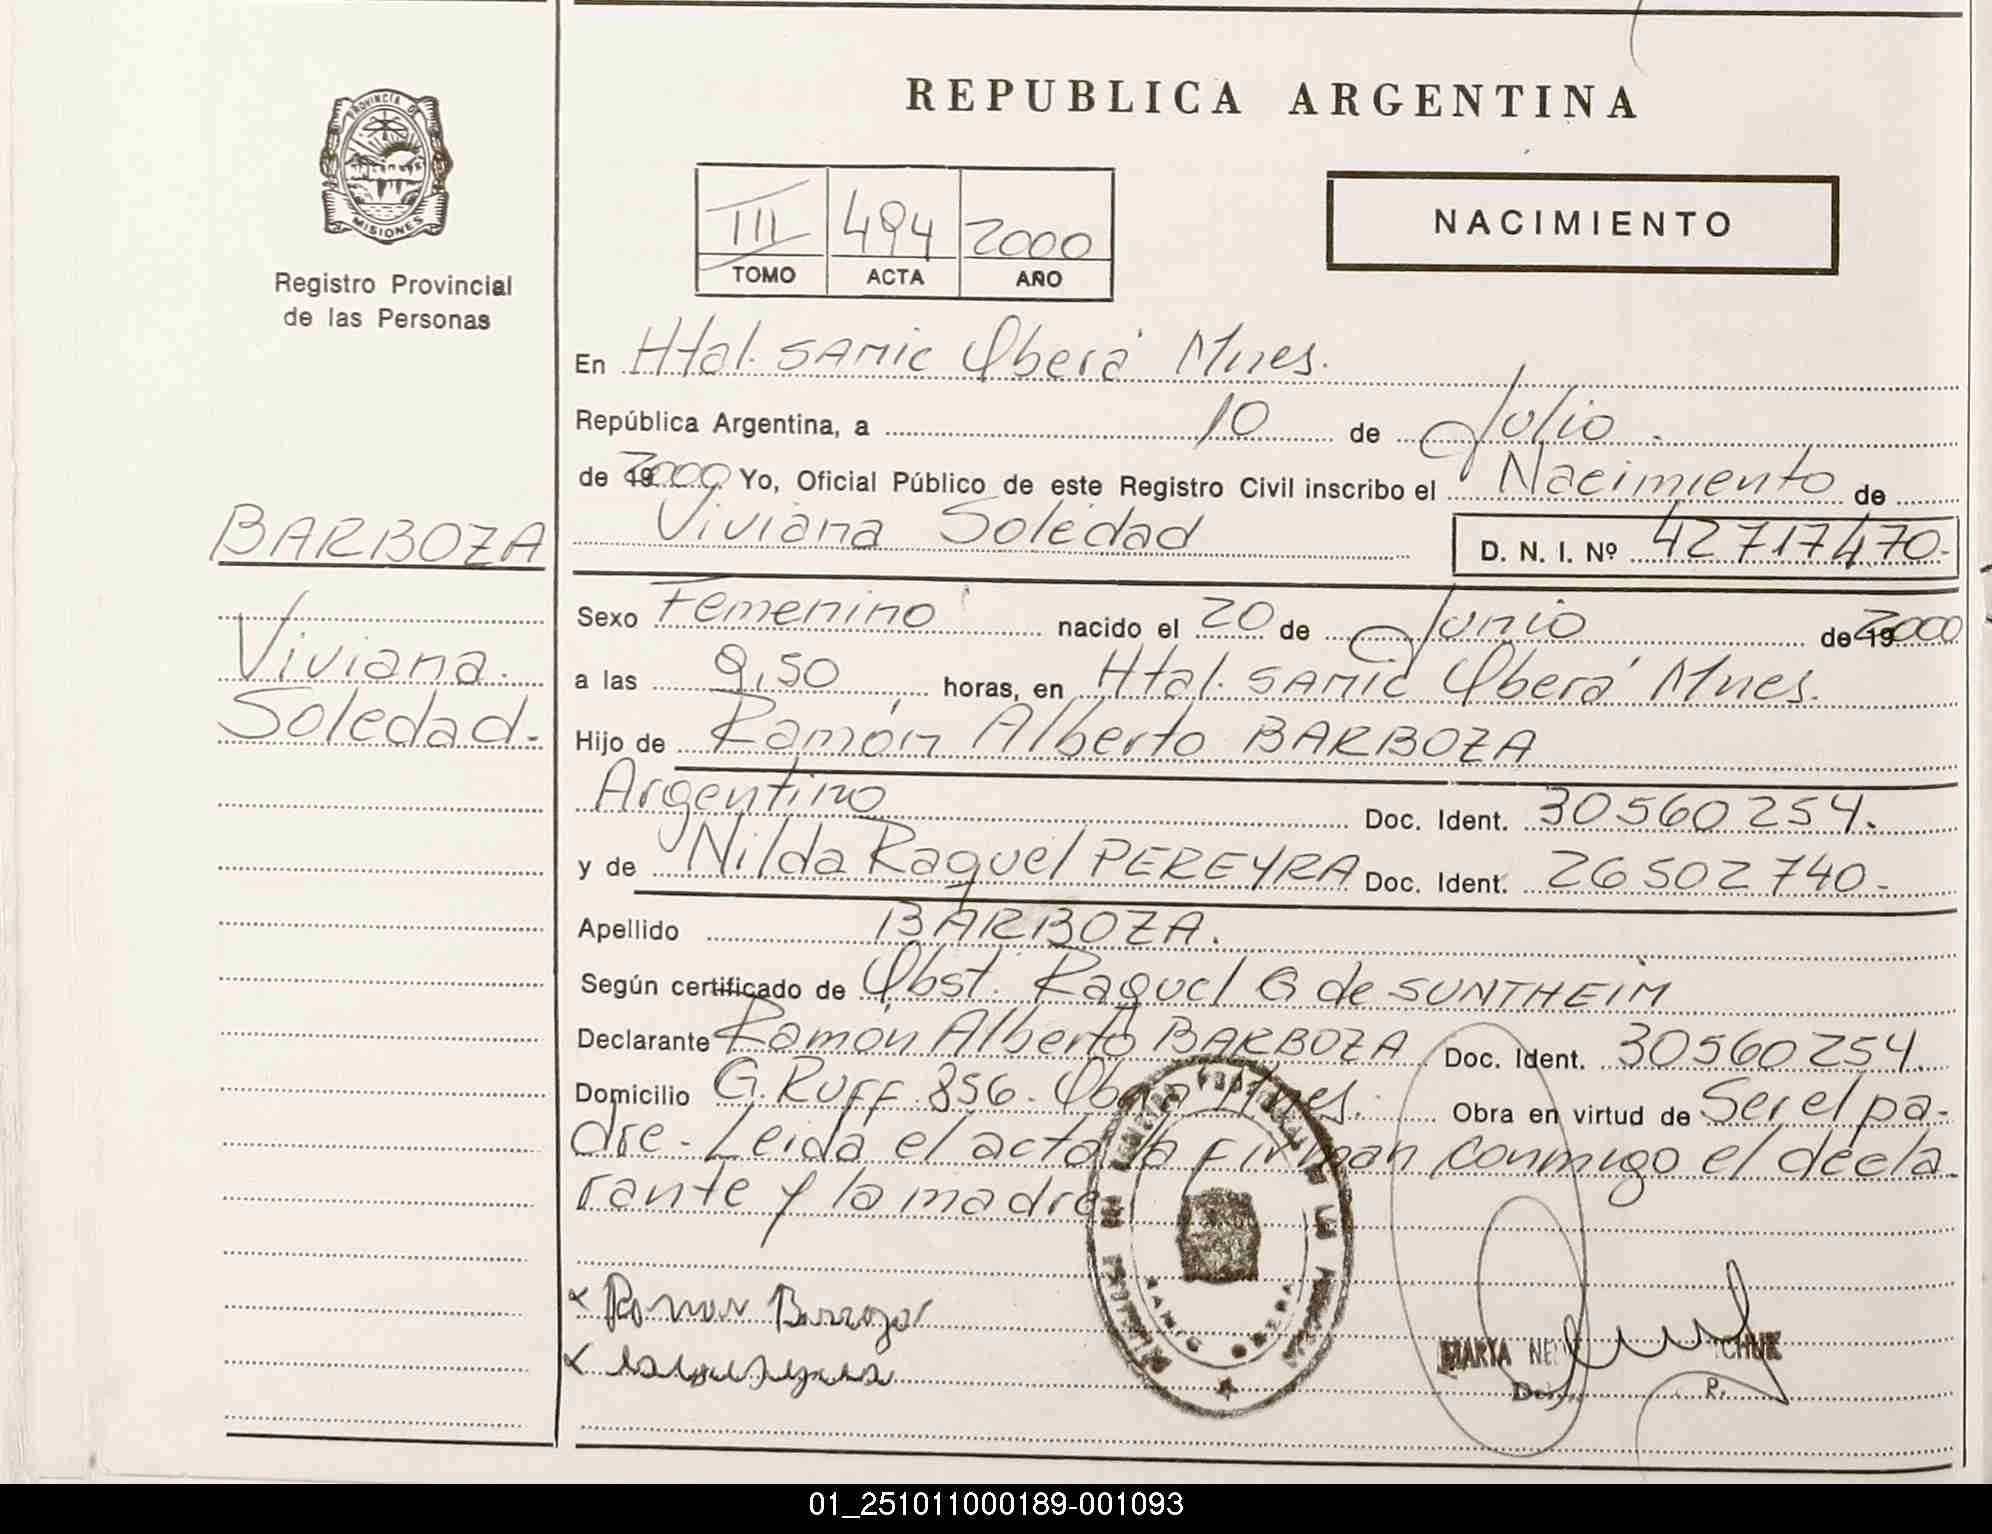 PROVINCIA DE
MISIONES
Registro Provincial
de las Personas
BARBOZA
Viviana
Soledad.-
REPUBLICA ARGENTINA
III 494 2000
TOMO ACTA AÑO
NACIMIENTO
En Htal. SAMIC Oberá Mnes.
República Argentina, a 10 de Julio.
de 19 2000 Yo, Oficial Público de este Registro Civil inscribo el Nacimiento de
Viviana Soledad D. N. I. Nº 42717470.-
Sexo Femenino nacido el 20 de Junio de 19 2000
a las 9,50 horas, en Htal. SAMIC Oberá Mnes.
Hijo de Ramón Alberto BARBOZA
Argentino Doc. Ident. 30560254.
y de Nilda Raquel PEREYRA Doc. Ident. 26502740.-
Apellido BARBOZA.
Según certificado de Obst. Raquel G de SUNTHEIM
Declarante Ramón Alberto BARBOZA Doc. Ident. 30560254.
Domicilio G. RUFF 856. Oberá Mnes. Obra en virtud de Ser el pa-
dre.- Leida el acta la firman conmigo el decla-
rante y la madre
SAMIC OBERA
x Ramon Barboza
x
MARTA
01_251011000189-001093